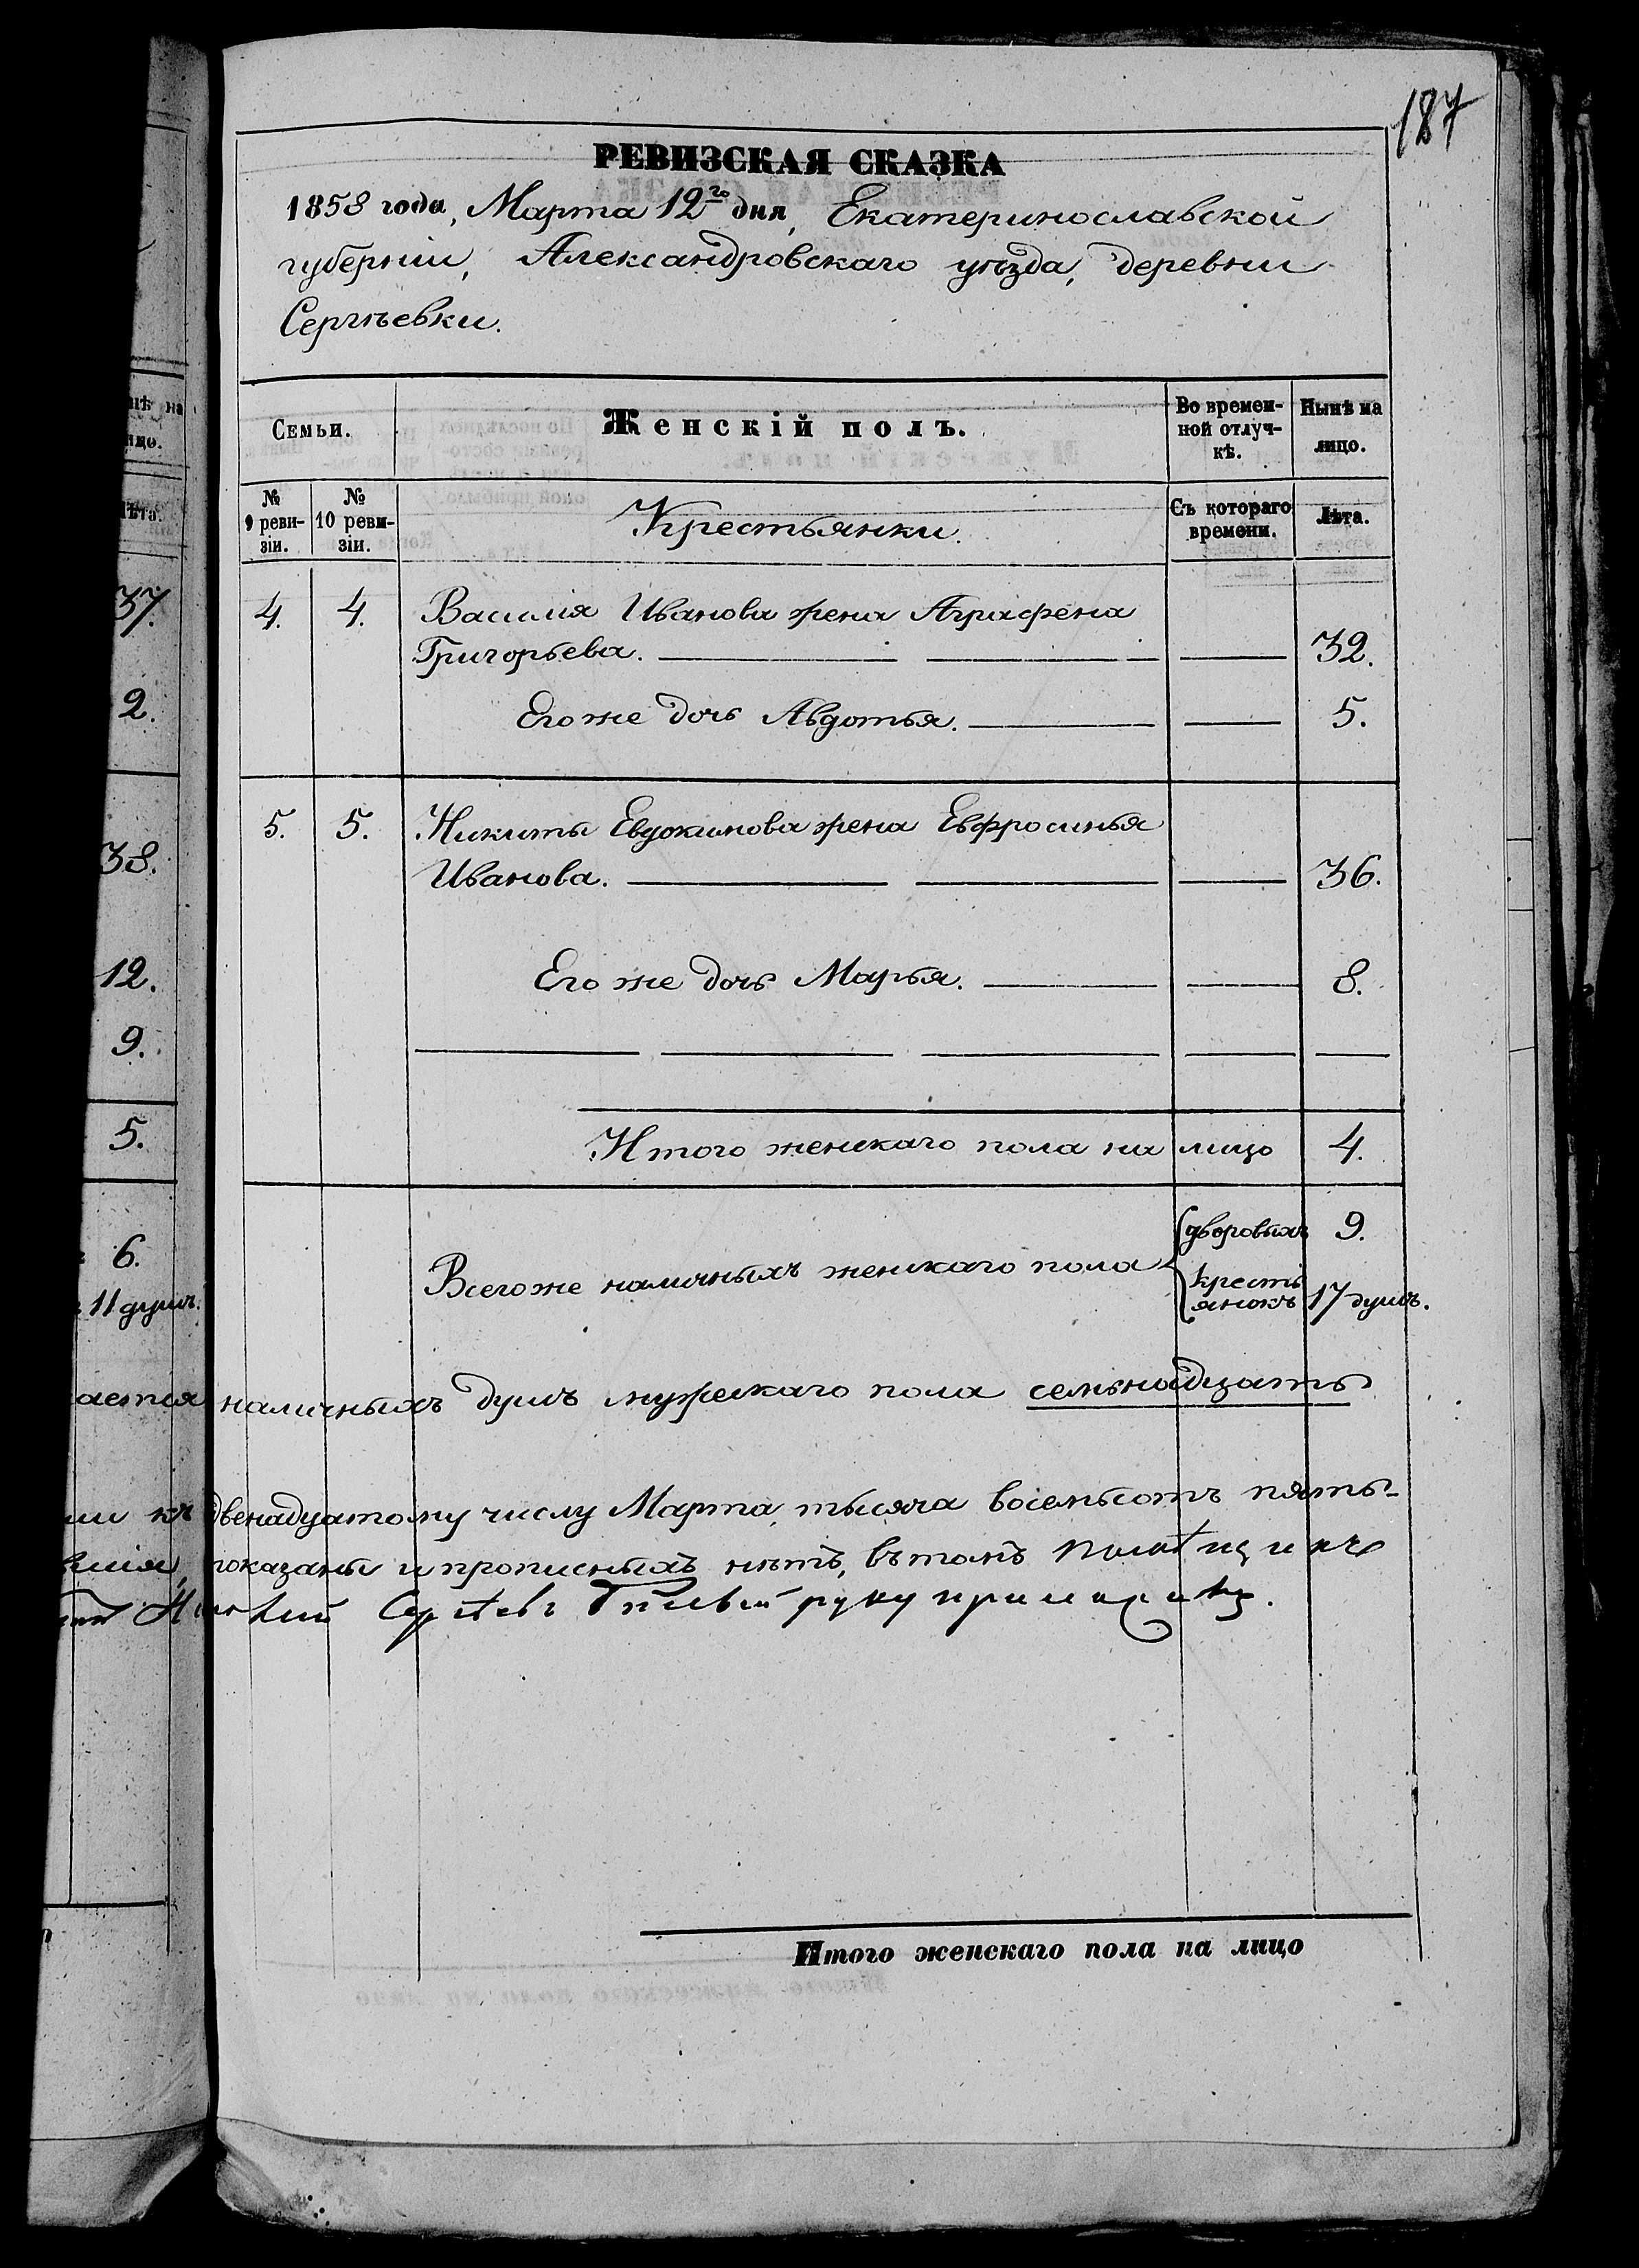 187
РЕВИЗСКАЯ СКАЗКА
1858 года, Марта 12го дня, Екатеринославской
губерніи, Александровскаго уѣзда, деревни
Сергѣевки.
Семьи.
Женскій полъ.
Во времен-
ной отлуч-
кѣ.
Нынѣ на
лицо.
№
9 реви-
зіи.
№
10 реви-
зіи.
Крестьянки.
Съ котораго
времени.
Лѣта.
4. 4. Василія Иванова жена Аграфена
Григорьева. 32.
Его же дочь Авдотья. 5.
5. 5. Никиты Евдокимова жена Евфросинья
Иванова. 36.
Его же дочь Марья. 8.
Итого женскаго пола на лицо 4.
Всего же наличныхъ женскаго пола
дворовыхъ 9.
кресть
янокъ 17 душъ.
наличныхъ душъ мужескаго пола семьнадцать
двенадцатому числу Марта тысяча восемьсотъ пять-
показаны и прописныхъ нѣтъ, въ томъ
руку приложилъ.
Итого женскаго пола на лицо
37.
2.
38.
12.
9.
5.
6.
11 душъ.